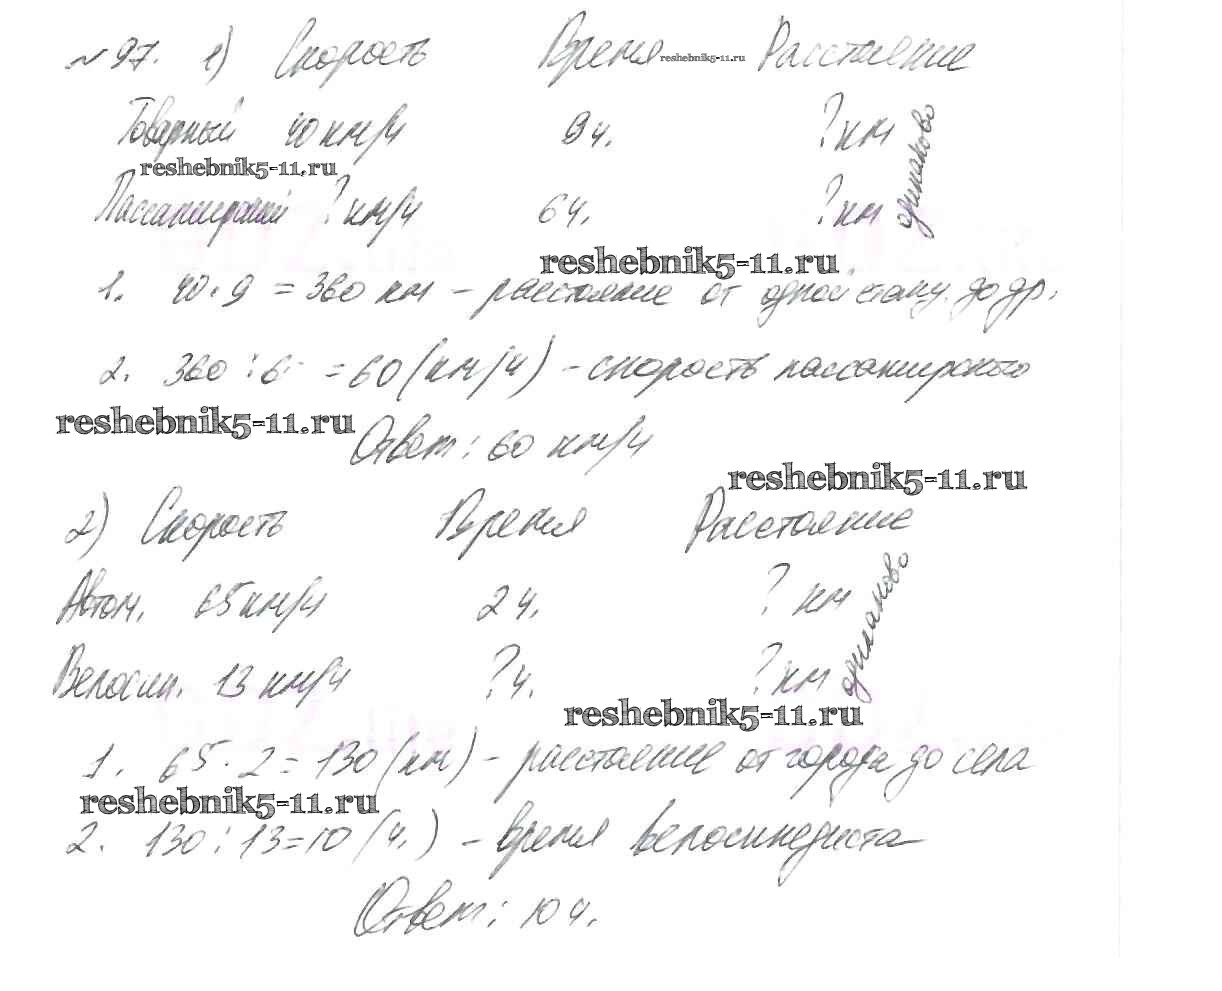 №97. 1) Скорость Время reshebnik5-11.ru Расстояние
Товарный 40 км/ч 9ч. ?км одинаково
reshebnik5-11.ru
Пассажирский ? км/ч 6ч. ?км
reshebnik5-11.ru
1. 40·9 = 360 км – расстояние от одной станц. до др.
2. 360 : 6 = 60 (км/ч) – скорость пассажирского
reshebnik5-11.ru
Ответ: 60 км/ч
reshebnik5-11.ru
2) Скорость Время Расстояние
Автом. 65км/ч 2ч. ? км одинаково
Велосип. 13 км/ч ?ч. ?км
reshebnik5-11.ru
1. 65·2=130(км) – расстояние от города до села
reshebnik5-11.ru
2. 130:13=10 (ч.) – время велосипедиста
Ответ: 10ч.